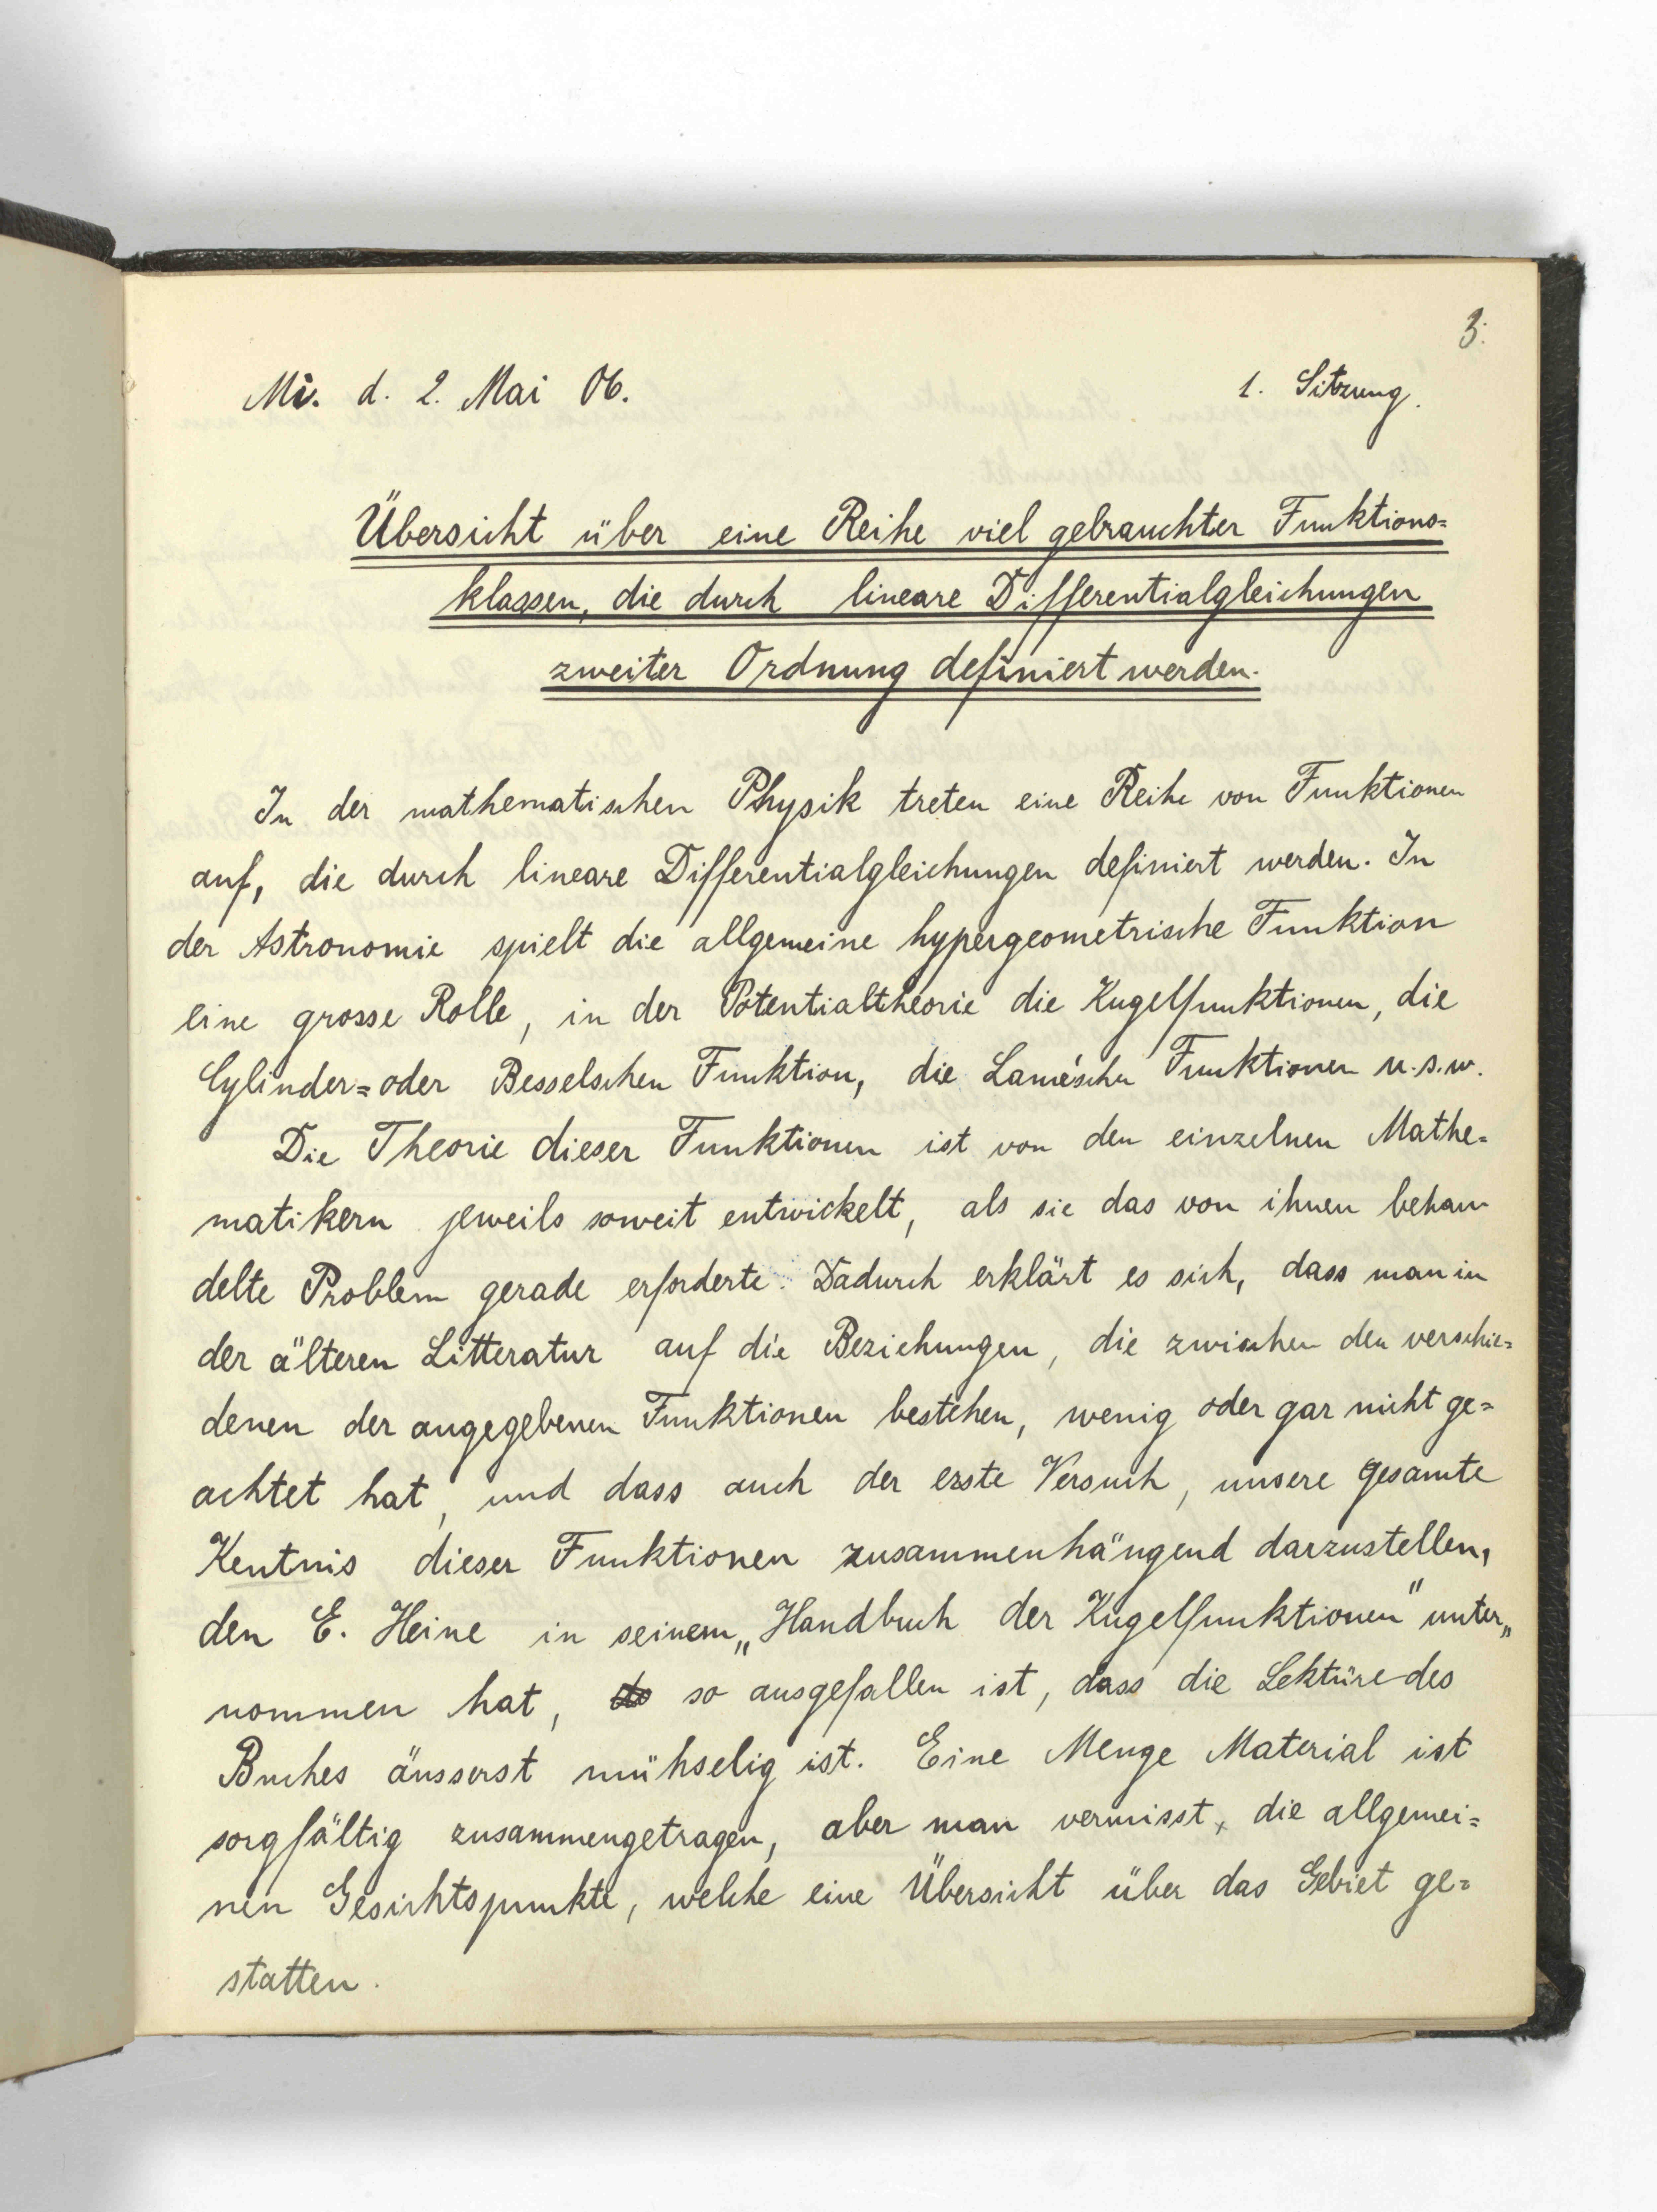 3.
Mi. d. 2. Mai 06. 1. Sitzung.
Übersicht über eine Reihe viel gebrauchter Funktions=
klassen, die durch lineare Differentialgleichungen
zweiter Ordnung definiert werden.
In der mathematischen Physik treten eine Reihe von Funktionen
auf, die durch lineare Differentialgleichungen definiert werden. In
der Astronomie spielt die allgemeine hypergeometrische Funktion
eine grosse Rolle, in der Potentialtheorie die Kugelfunktionen, die
Cylinder=oder Besselschen Funktion, die Lamé'schen Funktionen u.s.w.
Die Theorie dieser Funktionen ist von den einzelnen Mathe=
matikern jeweils soweit entwickelt, als sie das von ihnen behan
delte Problem gerade erforderte. Dadurch erklärt es sich, dass man in
der älteren Litteratur auf die Beziehungen, die zwischen den verschie=
denen der angegebenen Funktionen bestehen, wenig oder gar nicht ge=
achtet hat, und dass auch der erste Versuch, unsere gesamte
Kentnis dieser Funktionen zusammenhängend darzustellen,
den E. Heine in seinem „Handbuch der Kugelfunktionen" unter„
nommen hat, so ausgefallen ist, dass die Lektüre des
Buches äusserst mühselig ist. Eine Menge Material ist
sorgfältig zusammengetragen, aber man vermisst, die allgemei=
nen Gesichtspunkte, welche eine Übersicht über das Gebiet ge=
statten.